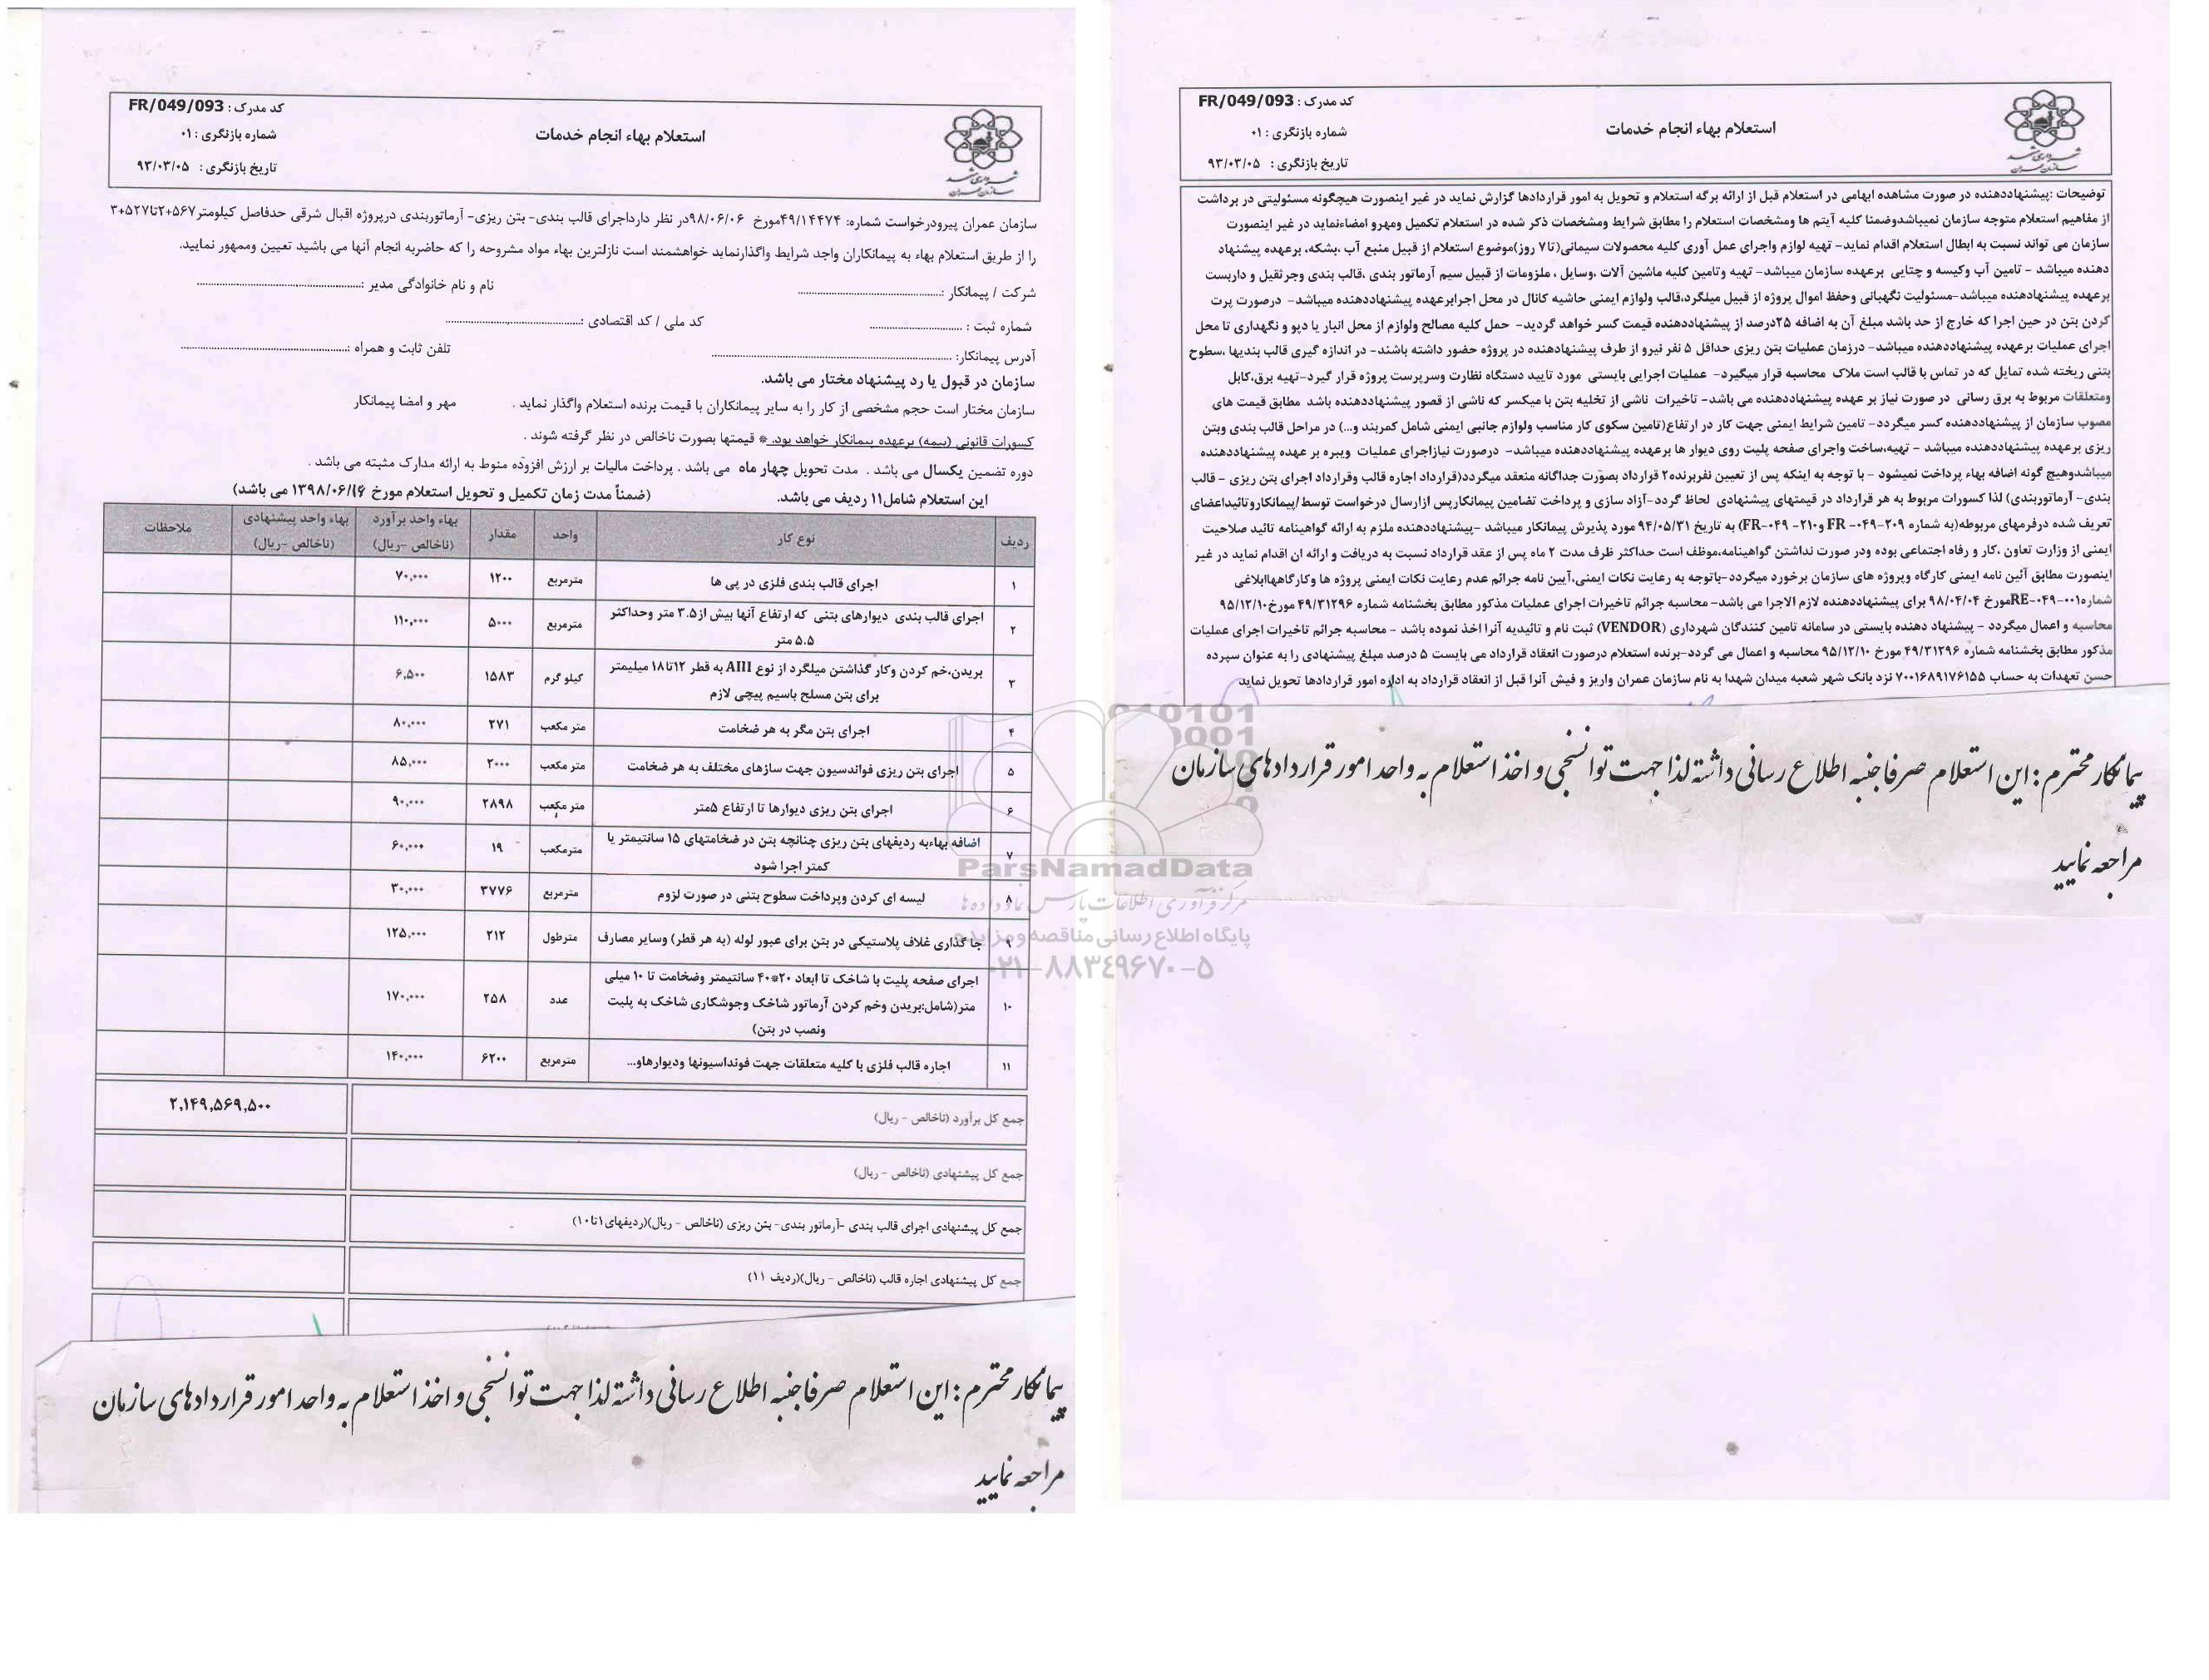 کد مدرک : FR/049/093
استعلام بهاء انجام خدمات
شماره بازنگری : ۰۱
تاریخ بازنگری : ۹۳/۰۳/۰۵
سازمان عمران پیرودرخواست شماره: ۴۹/۱۴۴۷۴مورخ ۹۸/۰۶/۰۶در نظر دارداجرای قالب بندی- بتن ریزی- آرماتوربندی درپروژه اقبال شرقی حدفاصل کیلومتر۲+۵۶۷تا۳+۵۲۷
را از طریق استعلام بهاء به پیمانکاران واجد شرایط واگذارنماید خواهشمند است نازلترین بهاء مواد مشروحه را که حاضربه انجام آنها می باشید تعیین وممهور نمایید.
شرکت / پیمانکار :........ نام و نام خانوادگی مدیر :........
شماره ثبت : ........ کد ملی / کد اقتصادی :........
آدرس پیمانکار: ........ تلفن ثابت و همراه :........
سازمان در قبول یا رد پیشنهاد مختار می باشد.
سازمان مختار است حجم مشخصی از کار را به سایر پیمانکاران با قیمت برنده استعلام واگذار نماید . مهر و امضا پیمانکار
کسورات قانونی (بیمه) برعهده پیمانکار خواهد بود. * قیمتها بصورت ناخالص در نظر گرفته شوند .
دوره تضمین یکسال می باشد . مدت تحویل چهار ماه می باشد . پرداخت مالیات بر ارزش افزوده منوط به ارائه مدارک مثبته می باشد .
این استعلام شامل۱۱ ردیف می باشد. (ضمناً مدت زمان تکمیل و تحویل استعلام مورخ ۱۳۹۸/۰۶/۱۶ می باشد)
ردیف نوع کار واحد مقدار بهاء واحد برآورد (ناخالص -ریال) بهاء واحد پیشنهادی (ناخالص -ریال) ملاحظات
۱ اجرای قالب بندی فلزی در پی ها مترمربع ۱۲۰۰ ۷۰,۰۰۰
۲ اجرای قالب بندی دیوارهای بتنی که ارتفاع آنها بیش از۳.۵ متر وحداکثر ۵.۵ متر مترمربع ۵۰۰۰ ۱۱۰,۰۰۰
۳ بریدن،خم کردن وکار گذاشتن میلگرد از نوع AIII به قطر ۱۲تا۱۸ میلیمتر برای بتن مسلح باسیم پیچی لازم کیلو گرم ۱۵۸۳ ۶,۵۰۰
۴ اجرای بتن مگر به هر ضخامت متر مکعب ۲۷۱ ۸۰,۰۰۰
۵ اجرای بتن ریزی فواندسیون جهت سازهای مختلف به هر ضخامت متر مکعب ۲۰۰۰ ۸۵,۰۰۰
۶ اجرای بتن ریزی دیوارها تا ارتفاع ۵متر متر مکعب ۲۸۹۸ ۹۰,۰۰۰
۷ اضافه بهاءبه ردیفهای بتن ریزی چنانچه بتن در ضخامتهای ۱۵ سانتیمتر یا کمتر اجرا شود مترمکعب ۱۹ ۶۰,۰۰۰
۸ لیسه ای کردن وپرداخت سطوح بتنی در صورت لزوم مترمربع ۳۷۷۶ ۳۰,۰۰۰
۹ جا گذاری غلاف پلاستیکی در بتن برای عبور لوله (به هر قطر) وسایر مصارف مترطول ۲۱۲ ۱۲۵,۰۰۰
۱۰ اجرای صفحه پلیت با شاخک تا ابعاد ۲۰*۴۰ سانتیمتر وضخامت تا ۱۰ میلی متر(شامل:بریدن وخم کردن آرماتور شاخک وجوشکاری شاخک به پلیت ونصب در بتن) عدد ۲۵۸ ۱۷۰,۰۰۰
۱۱ اجاره قالب فلزی با کلیه متعلقات جهت فونداسیونها ودیوارهاو... مترمربع ۶۲۰۰ ۱۴۰,۰۰۰
جمع کل برآورد (ناخالص - ریال) ۲,۱۴۹,۵۶۹,۵۰۰
جمع کل پیشنهادی (ناخالص - ریال)
جمع کل پیشنهادی اجرای قالب بندی -آرماتور بندی- بتن ریزی (ناخالص - ریال)(ردیفهای۱تا۱۰)
جمع کل پیشنهادی اجاره قالب (ناخالص - ریال)(ردیف ۱۱)
پیمانکار محترم : این استعلام صرفا جنبه اطلاع رسانی داشته لذا جهت توانسنجی و اخذ استعلام به واحد امور قراردادهای سازمان
مراجعه نمایید
کد مدرک : FR/049/093
استعلام بهاء انجام خدمات
شماره بازنگری : ۰۱
تاریخ بازنگری : ۹۳/۰۳/۰۵
توضیحات :پیشنهاددهنده در صورت مشاهده ابهامی در استعلام قبل از ارائه برگه استعلام و تحویل به امور قراردادها گزارش نماید در غیر اینصورت هیچگونه مسئولیتی در برداشت
از مفاهیم استعلام متوجه سازمان نمیباشدوضمنا کلیه آیتم ها ومشخصات استعلام را مطابق شرایط ومشخصات ذکر شده در استعلام تکمیل ومهرو امضاءنماید در غیر اینصورت
سازمان می تواند نسبت به ابطال استعلام اقدام نماید- تهیه لوازم واجرای عمل آوری کلیه محصولات سیمانی(تا۷ روز)موضوع استعلام از قبیل منبع آب ،بشکه، برعهده پیشنهاد
دهنده میباشد - تامین آب وکیسه و چتایی برعهده سازمان میباشد- تهیه وتامین کلیه ماشین آلات ،وسایل ، ملزومات از قبیل سیم آرماتور بندی ،قالب بندی وجرثقیل و داربست
برعهده پیشنهاددهنده میباشد-مسئولیت نگهبانی وحفظ اموال پروژه از قبیل میلگرد،قالب ولوازم ایمنی حاشیه کانال در محل اجرابرعهده پیشنهاددهنده میباشد- درصورت پرت
کردن بتن در حین اجرا که خارج از حد باشد مبلغ آن به اضافه ۲۵درصد از پیشنهاددهنده قیمت کسر خواهد گردید- حمل کلیه مصالح ولوازم از محل انبار یا دپو و نگهداری تا محل
اجرای عملیات برعهده پیشنهاددهنده میباشد- درزمان عملیات بتن ریزی حداقل ۵ نفر نیرو از طرف پیشنهادهنده در پروژه حضور داشته باشند- در اندازه گیری قالب بندیها ،سطوح
بتنی ریخته شده تمایل که در تماس با قالب است ملاک محاسبه قرار میگیرد- عملیات اجرایی بایستی مورد تایید دستگاه نظارت وسرپرست پروژه قرار گیرد-تهیه برق،کابل
ومتعلقات مربوط به برق رسانی در صورت نیاز بر عهده پیشنهاددهنده می باشد- تاخیرات ناشی از تخلیه بتن با میکسر که ناشی از قصور پیشنهاددهنده باشد مطابق قیمت های
مصوب سازمان از پیشنهاددهنده کسر میگردد- تامین شرایط ایمنی جهت کار در ارتفاع(تامین سکوی کار مناسب ولوازم جانبی ایمنی شامل کمربند و...) در مراحل قالب بندی وبتن
ریزی برعهده پیشنهاددهنده میباشد - تهیه،ساخت واجرای صفحه پلیت روی دیوار ها برعهده پیشنهاددهنده میباشد- درصورت نیازاجرای عملیات ویبره بر عهده پیشنهاددهنده
میباشدوهیچ گونه اضافه بهاء پرداخت نمیشود - با توجه به اینکه پس از تعیین نفربرنده۲ قرارداد بصورت جداگانه منعقد میگردد(قرارداد اجاره قالب وقرارداد اجرای بتن ریزی - قالب
بندی- آرماتوربندی) لذا کسورات مربوط به هر قرارداد در قیمتهای پیشنهادی لحاظ گردد-آزاد سازی و پرداخت تضامین پیمانکارپس ازارسال درخواست توسط/پیمانکاروتائیداعضای
تعریف شده درفرمهای مربوطه(به شماره ۲۰۹-۰۴۹- FR و۲۱۰- ۰۴۹-FR) به تاریخ ۹۴/۰۵/۳۱ مورد پذیرش پیمانکار میباشد -پیشنهاددهنده ملزم به ارائه گواهینامه تائید صلاحیت
ایمنی از وزارت تعاون ،کار و رفاه اجتماعی بوده ودر صورت نداشتن گواهینامه،موظف است حداکثر ظرف مدت ۲ ماه پس از عقد قرارداد نسبت به دریافت و ارائه ان اقدام نماید در غیر
اینصورت مطابق آئین نامه ایمنی کارگاه وپروژه های سازمان برخورد میگردد-باتوجه به رعایت نکات ایمنی،آیین نامه جرائم عدم رعایت نکات ایمنی پروژه ها وکارگاههاابلاغی
شماره۰۰۱-۰۴۹-REمورخ ۹۸/۰۴/۰۴ برای پیشنهاددهنده لازم الاجرا می باشد- محاسبه جرائم تاخیرات اجرای عملیات مذکور مطابق بخشنامه شماره ۴۹/۳۱۲۹۶ مورخ۹۵/۱۲/۱۰
محاسبه و اعمال میگردد - پیشنهاد دهنده بایستی در سامانه تامین کنندگان شهرداری (VENDOR) ثبت نام و تائیدیه آنرا اخذ نموده باشد - محاسبه جرائم تاخیرات اجرای عملیات
مذکور مطابق بخشنامه شماره ۴۹/۳۱۲۹۶ مورخ ۹۵/۱۲/۱۰ محاسبه و اعمال می گردد-برنده استعلام درصورت انعقاد قرارداد می بایست ۵ درصد مبلغ پیشنهادی را به عنوان سپرده
حسن تعهدات به حساب ۷۰۰۱۶۸۹۱۷۶۱۵۵ نزد بانک شهر شعبه میدان شهدا به نام سازمان عمران واریز و فیش آنرا قبل از انعقاد قرارداد به اداره امور قراردادها تحویل نماید
پیمانکار محترم : این استعلام صرفا جنبه اطلاع رسانی داشته لذا جهت توانسنجی و اخذ استعلام به واحد امور قراردادهای سازمان
مراجعه نمایید
ParsNamadData
مرکز فرآوری اطلاعات پارس نماد داده ها
پایگاه اطلاع رسانی مناقصه و مزایده
۰۲۱-۸۸۳۴۹۶۷۰-۵